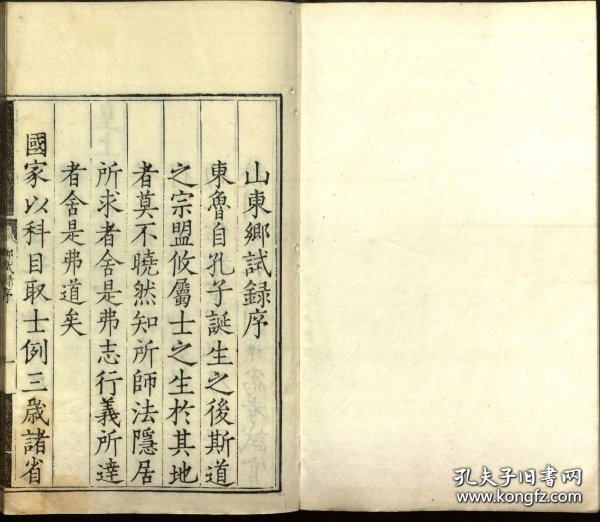 山東鄉試録序
東魯自孔子誕生之後斯道
之宗盟攸屬士之生於其地
者莫不曉然知所師法隱居
所求者舍是弗志行義所達
者舍是弗道矣
國家以科目取士例三歲諸省
鄉試録序
一
孔夫子旧书网
www.kongfz.com